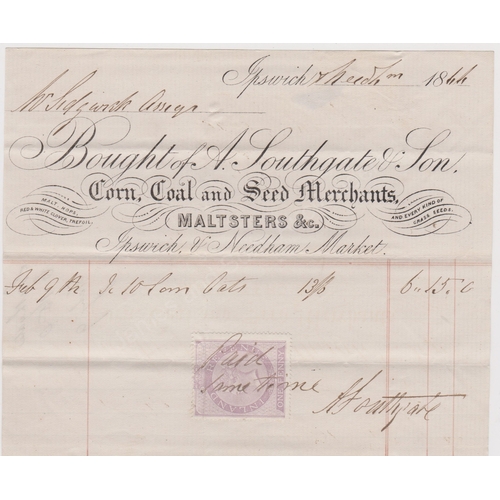 Ipswich & Needhm 1866
Mr Sidgwick
Bought of A. Southgate & Son,
Corn, Coal and Seed Merchants,
MALT, HOPS,
RED & WHITE CLOVER, TREFOIL,
MALTSTERS &c.
AND EVERY KIND OF
GRASS SEEDS.
Ipswich, & Needham Market.
Feb 9th To 10 Com Oats 13/6 6 " 15 " 0
INLAND REVENUE
ONE PENNY
Paid
Same time
A Southgate